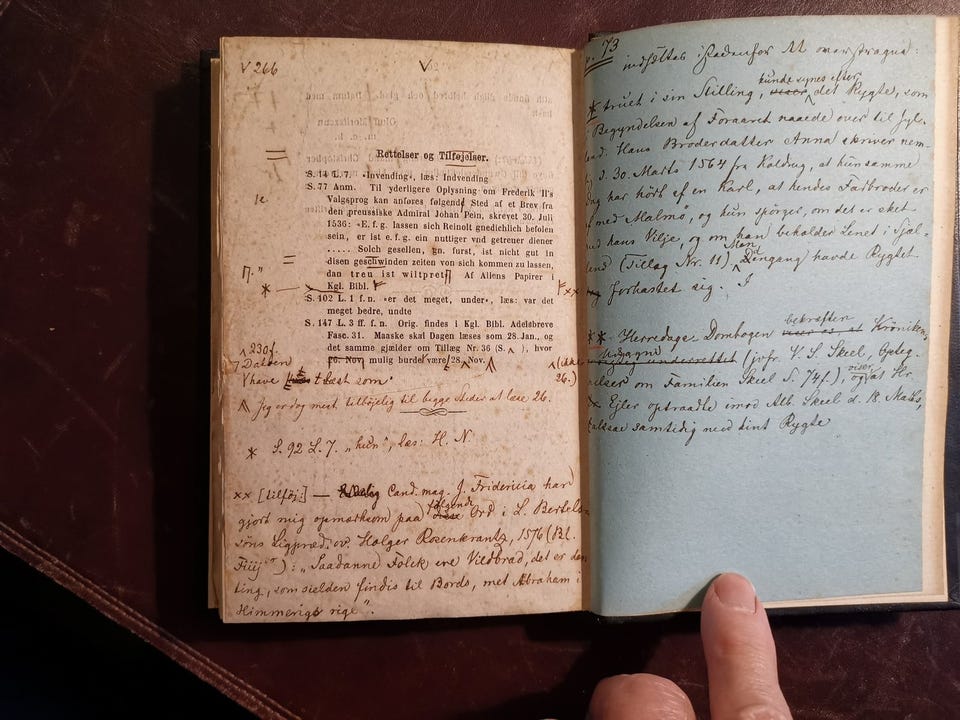 V 266
V
Rettelser og Tilføjelser.
S. 14 L. 7. »Invending«, læs: Indvending
S. 77 Anm. Til yderligere Oplysning om Frederik II's
Valgsprog kan anføres følgende Sted af et Brev fra
den preussiske Admiral Johan Pein, skrevet 30. Juli
1536: »E. f. g. lassen sich Reinolt gnedichlich befolen
sein, er ist e. f. g. ein nuttiger vnd getrener diener
..... Solch gesellen, gn. furst, ist nicht gut in
disen geschwinden zeiten von sich kommen zu lassen,
dan treu ist wiltpret« Af Allens Papirer i
Kgl. Bibl.
S. 102 L. 1 f. n. »er det meget, under«, læs: var det
meget bedre, undte
S. 147 L. 3 ff. f. n. Orig. findes i Kgl. Bibl. Adelsbreve
Fasc. 31. Maaske skal Dagen læses som 28. Jan., og
det samme gjælder om Tillæg Nr. 36 (S. ), hvor
26. Nov. mulig burde være 28. Nov.
230f.
have læst som
26.)
Jeg er dog mest tilböjelig til begge Steder at læse 26.
* S. 92 L. 7. „hun", læs: H. N.
×× [tilföj:] — Cand. mag. J. Fridericia har
gjort mig opmærksom paa følgende Ord i L. Bertel-
söns Ligpræd. ov. Holger Rosenkrantz, 1576 (Bl.
): „Saadanne Folck ere Vildbrad, det er den
ting, som sielden findis til Bords, met Abraham i
Himmerigs rige".
73
indsættes istedenfor det overstregne:
* truet i sin Stilling, kunde synes efter det Rygte, som
i Begyndelsen af Foraaret naaede over til Jyl-
land. Hans Broderdatter Anna skriver nem-
d. 30. Marts 1564 fra Kolding, at hun samme
dag har hört af en Karl, at hendes Farbroder er
med Malmö, og hun spörger, om det er sket
hans Vilje, og om han beholder Lenet i Sjæl-
land (Tillæg Nr. 11) Men Dengang havde Rygtet
forhastet sig.
** Herredags Dombogen bekræfter Krönikens
underrettet (jvfr. V. S. Skeel, Opteg-
nelser om Familien Skeel S. 74f.), viser, at Hr.
Ejler optraadte imod Alb. Skeel d. 18. Marts,
altsaa samtidig med hint Rygte